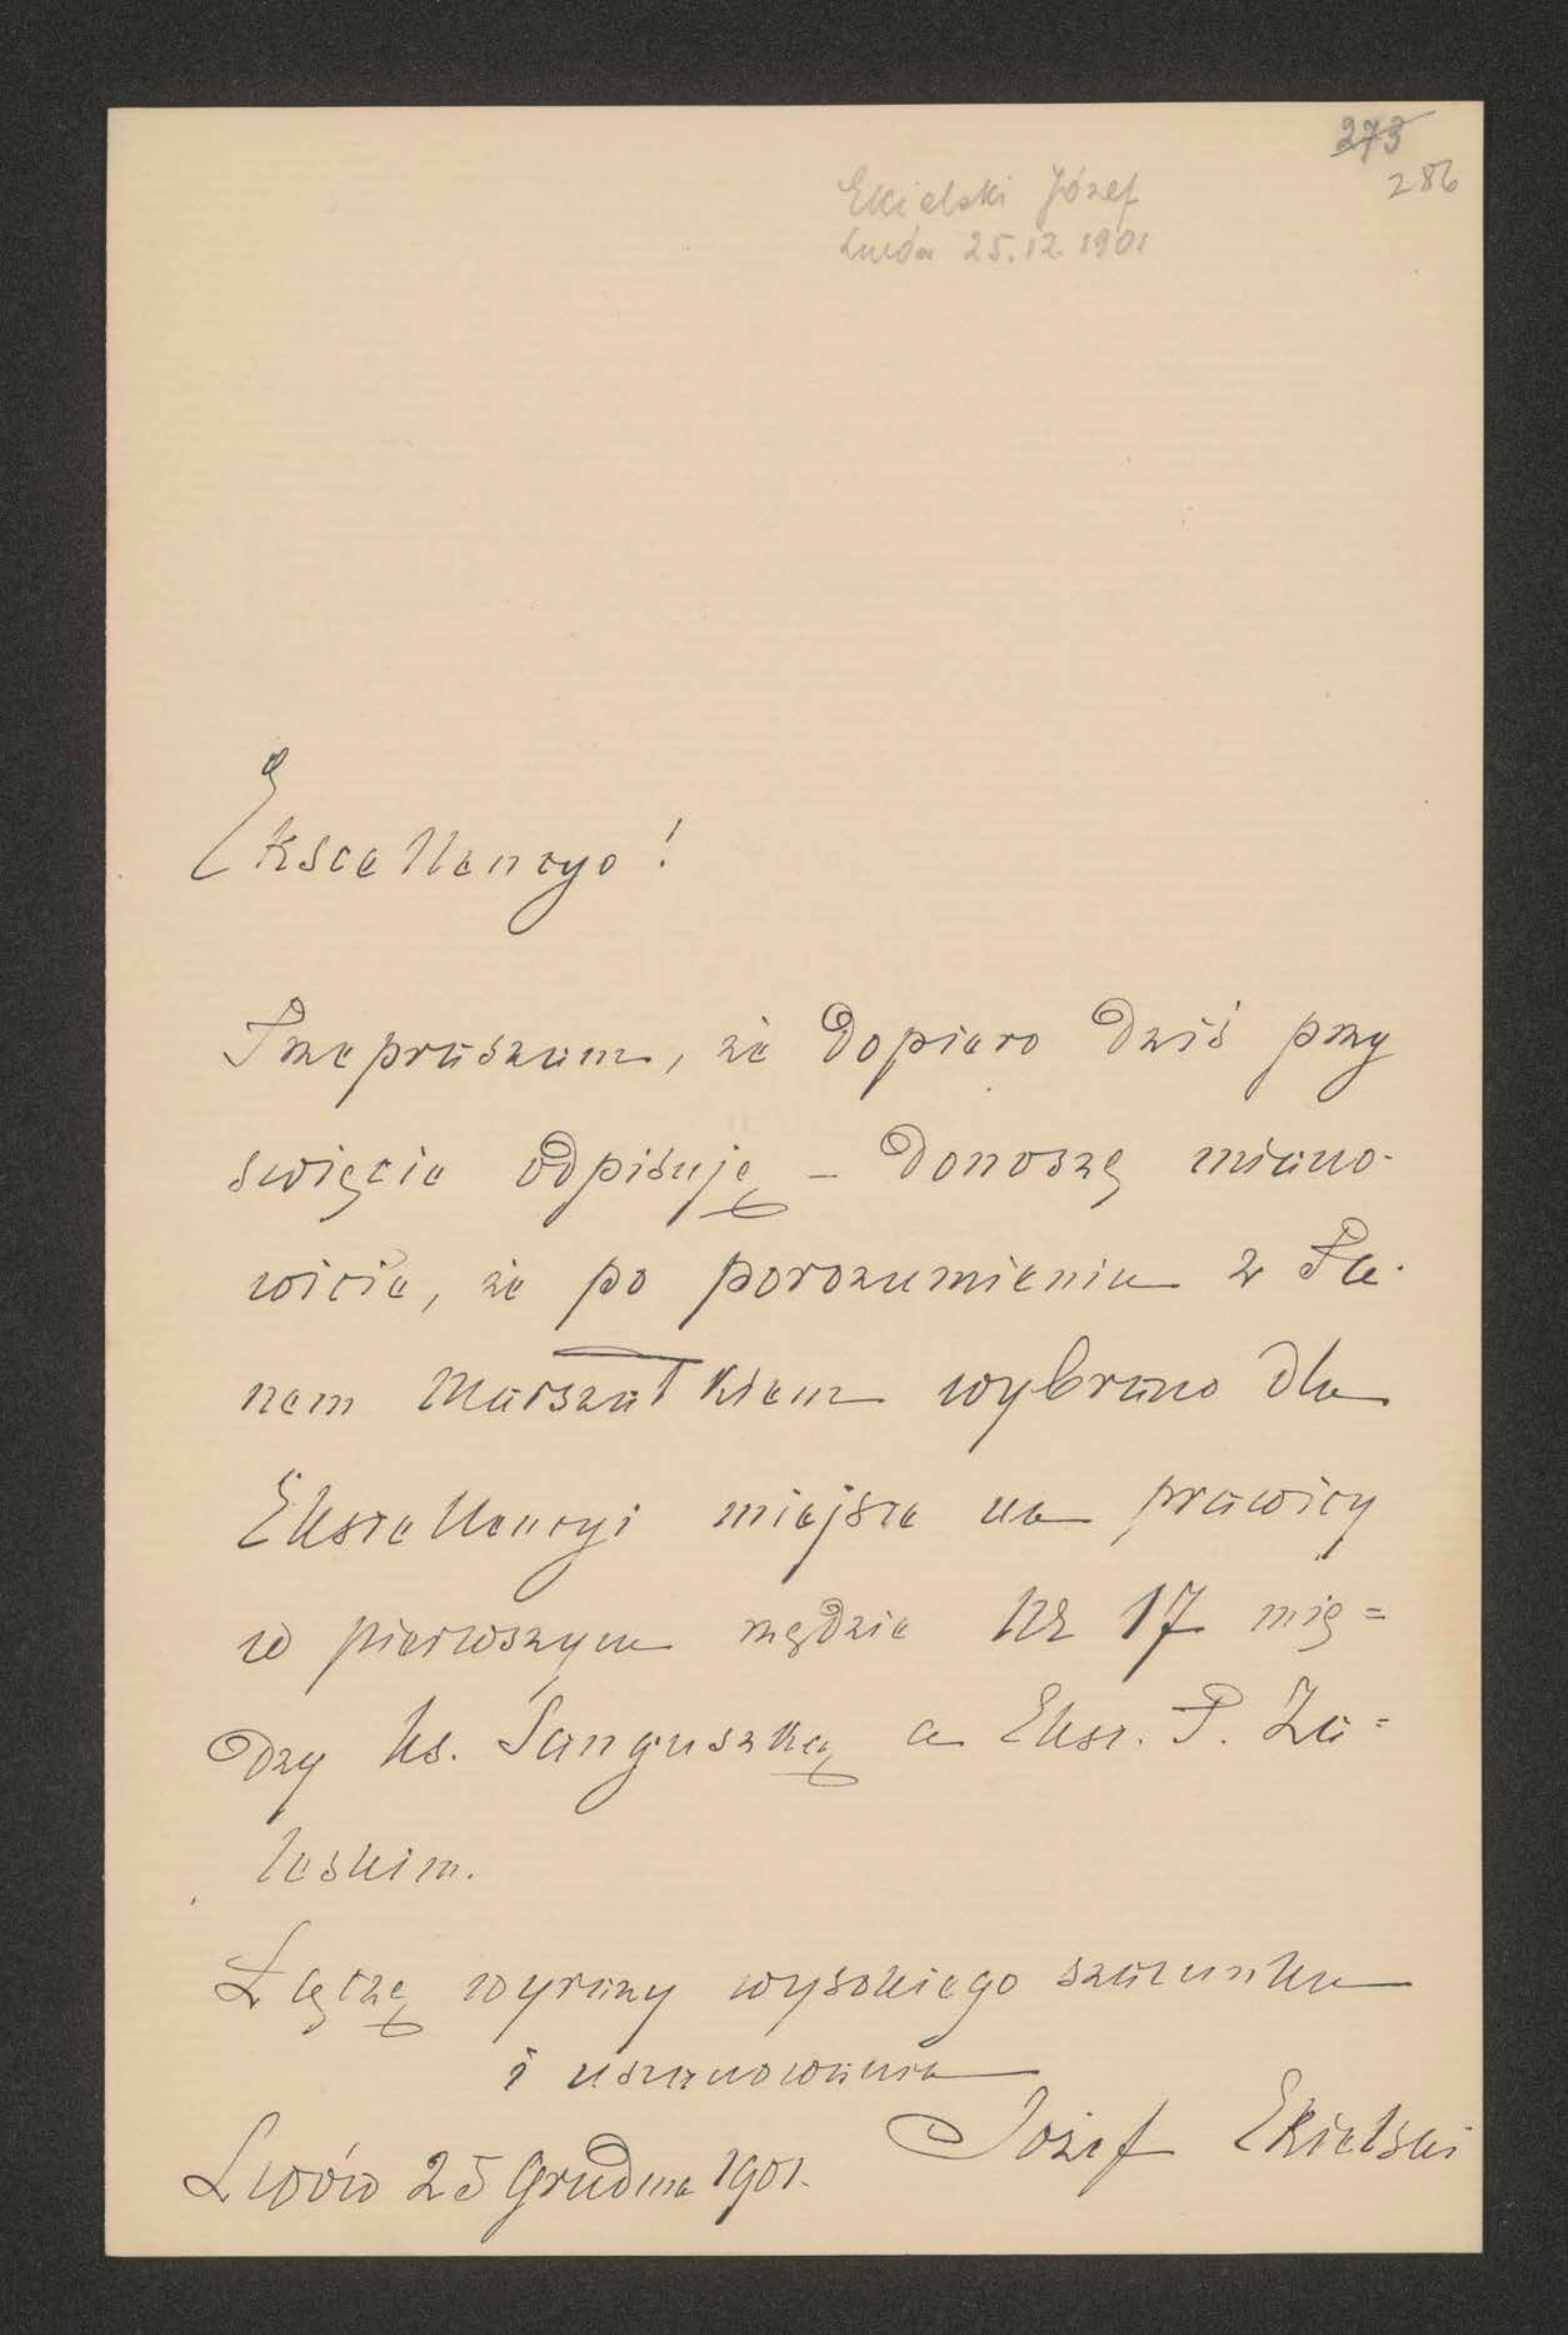 273
286
Ekielski Józef
Lwów 25.12.1901
Ekscellencyo!
Przepraszam, że dopiero dziś przy
święcie odpisuję – donoszę miano-
wicie, że po porozumieniu z Pa-
nem Marszałkiem wybrano dla
Ekscellencyi miejsce na prawicy
w pierwszym rzędzie Nr 17 mię=
dzy ks. Sanguszką a Eksc. P. Za=
leskim.
Łączę wyrazy wysokiego szacunku
i uszanowania
Józef Ekielski
Lwów 25 Grudnia 1901.